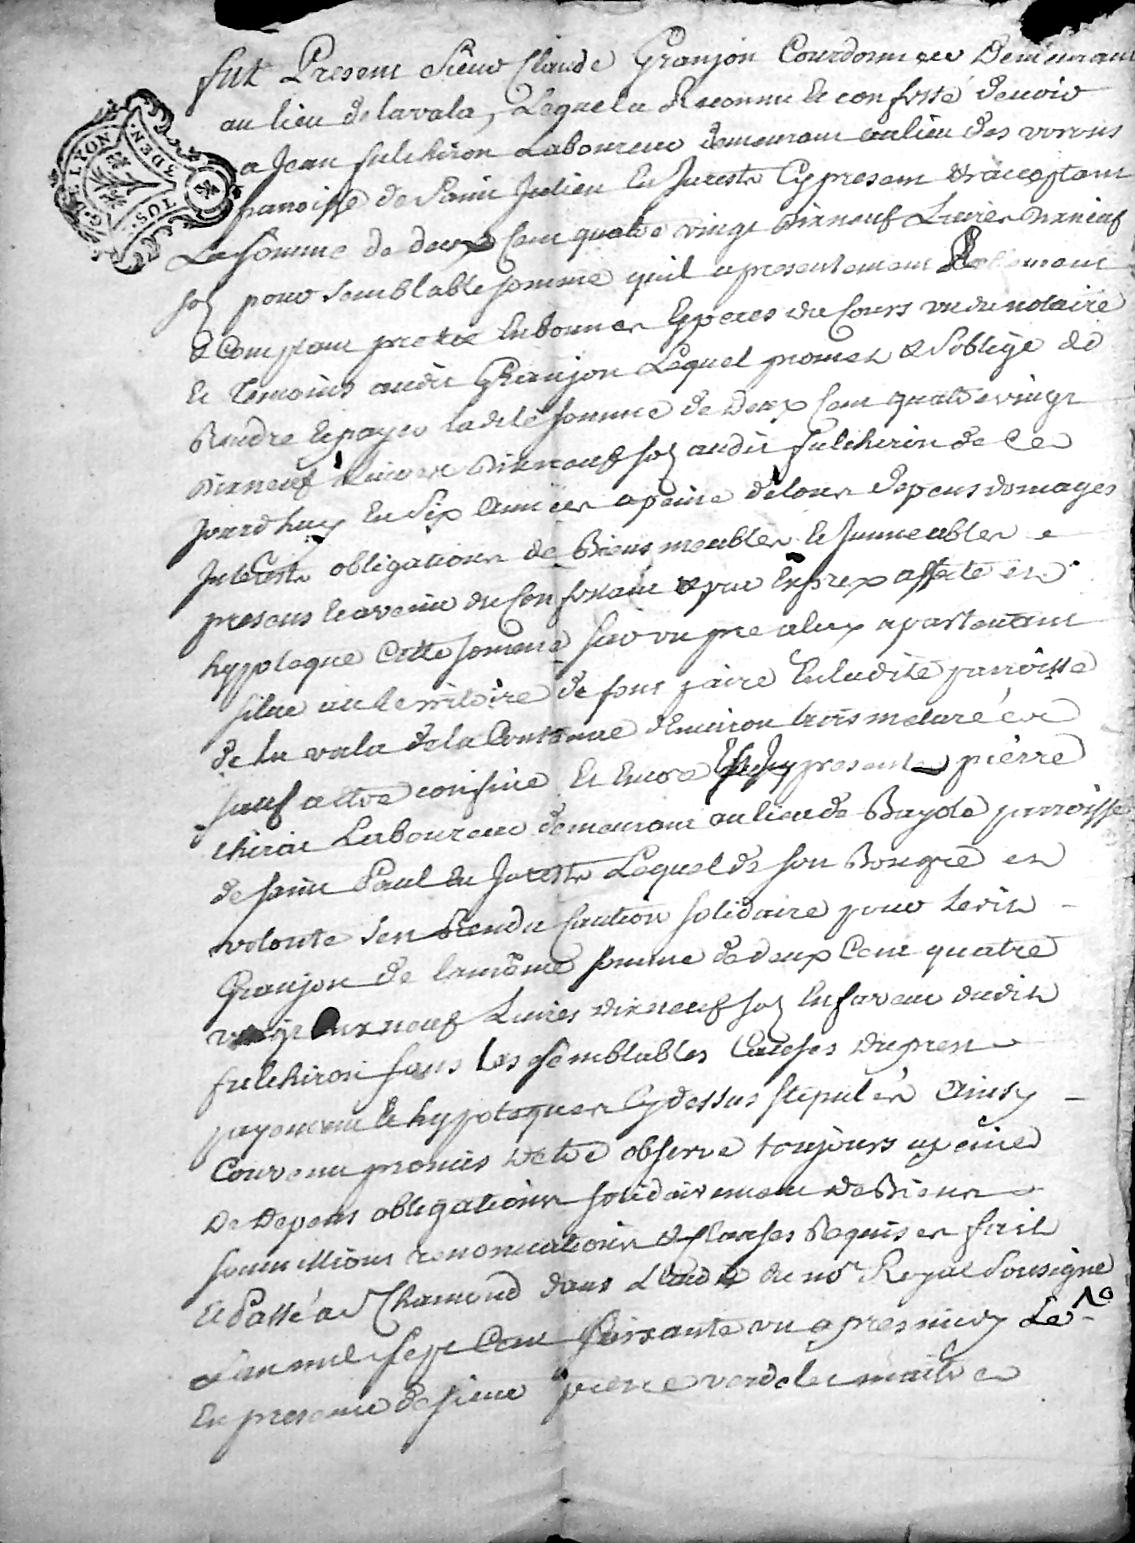 G. DE LYON. 3 DEN. TUS.
fut Present Sieur Claude Granjon Courdonnier Demeurant
au lieu de lavala, Lequel a Reconnu et confessé devoir
a Jean fulchiron Laboureur demeurant au lieu des
parroisse de Saint Julien En Jarests Cy present & acceptant
La somme de deux Cent quatre vingt Dixneuf Livres Dixneuf
sol pour Semblable somme quil a presentement Réelement
& Comptant pretée En bonnes Especes du Cours vu du notaire
Et Temoins audit Granjon Lequel promet & Soblige de
Rendre & payer ladite somme de Deux Cent quatre vingt
Dixneuf Livres Dixneuf sol audit fulchiron de Ce
Jourdhuy En Six années a peine de tous depens domages
Interests obligations de Biens meubles & Immeubles
presens & avenir du Confessant & par Exprex affecté et
hypoteque Cette somme sur un pre a luy apartenant
situe au territoire de sous paire En ladite parroisse
de la vala de la Contenue denviron trois meturées
sauf autre confine Et Encore Cy present pierre
chirat Laboureur demeurant au lieu de Bayole parroisse
de saint Paul En Jarests Lequel de son Bongre et
volonté sen Rendu Caution solidaire pour ledit
Granjon de la même somme de deux Cent quatre
vingt Dixneuf Livres dixneuf sol En faveur dudit
fulchiron sous les semblables Causes du prest
payement & hypoteques Cy dessus stipulés Ainsy
Convenu promis detre observé toujours a peine
De Depens obligations solidairement de Biens
soumissions renonciations & Clauses Requises fait
Et Passé a St Chamond dans Létude du nore Royal Sousigné
Lan mil sept Cent soixante un apres midy Le 10
En presence de sieur pierre verdelet maitre